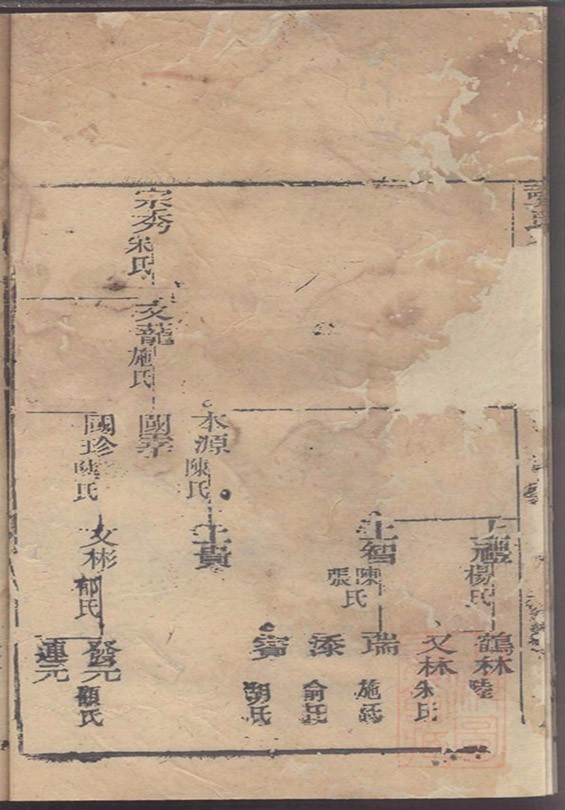 宗秀
朱氏
文龍
施氏
本源
陳氏
國珍
陸氏
士禮
楊氏
士智
陳
張氏
士貴
文彬
郁氏
鶴林
陸
文林
朱氏
瑞
施氏
添
俞氏
寶
胡氏
發元
顧氏
連元